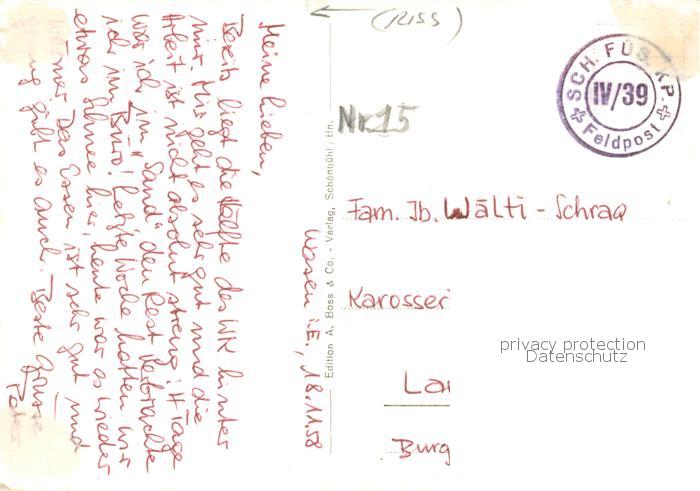 (RISS)
Nr. 15
SCH. FÜS. KP.
IV/39
Feldpost
Wasen i.E., 18.11.58
Meine Lieben,
Bereits liegt die Hälfte des WK hinter
mir. Mir geht es sehr gut und die
Arbeit ist nicht absolut streng: 4 Tage
war ich im "Sand" den Rest verbrachte
ich im Büro! Letzte Woche hatten wir
etwas Schnee hier, heute war es wieder
Das Essen ist sehr gut und
gibt es auch. Beste Grüsse
Peter
Edition A. Boss & Co. - Verlag, Schönbühl / Bn.
Fam. Jb. Wälti - Schraq
Karosser
Lar
Burg
privacy protection
Datenschutz